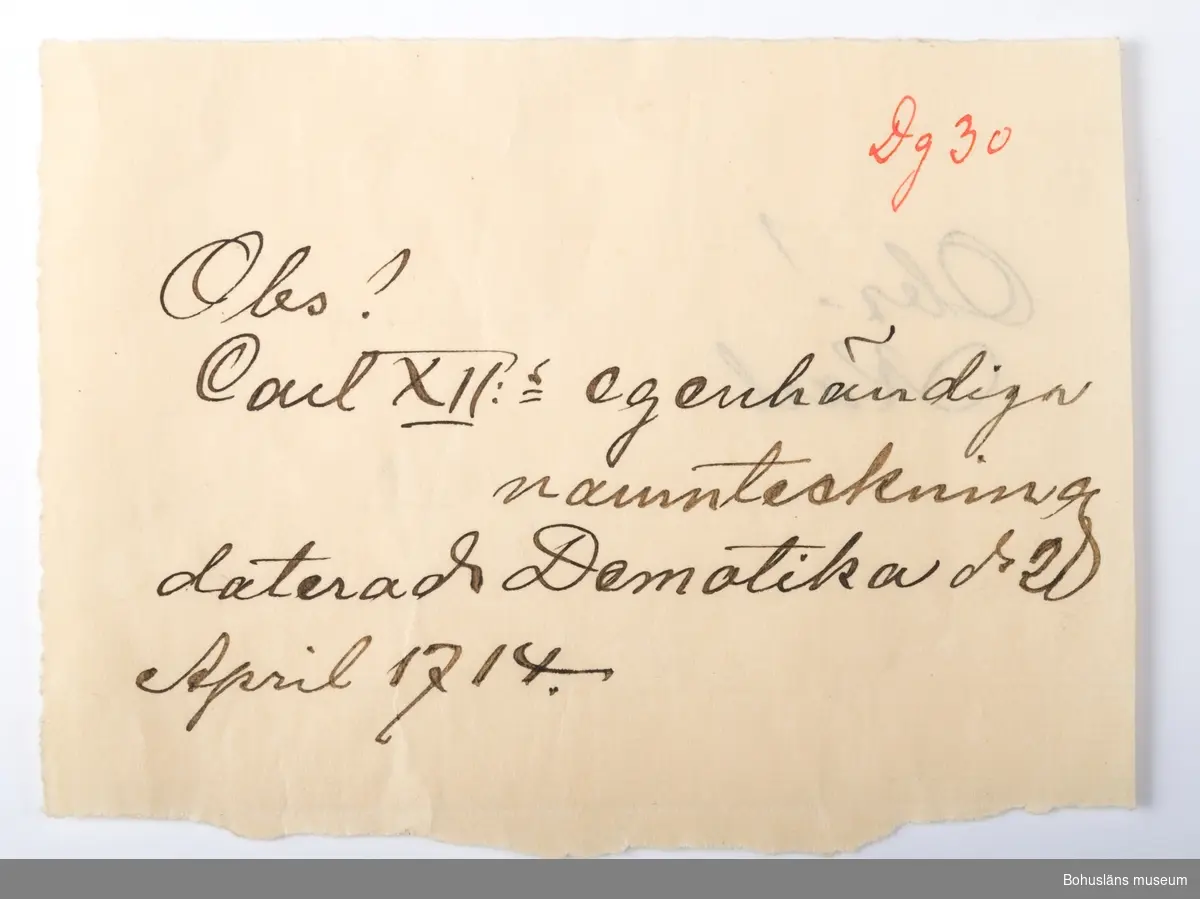 Dg 30
Obs!
Carl XII:s egenhändiga
namnteckning
daterad Demotika d.
April 1714.
Bohusläns museum